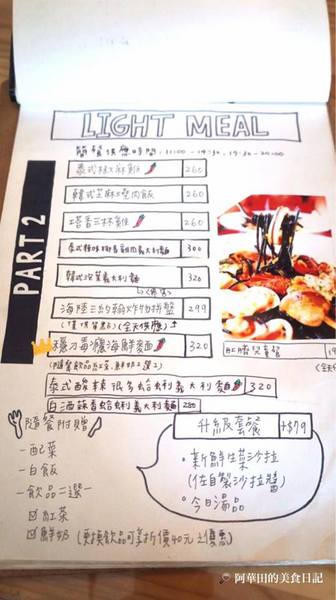 LIGHT MEAL
簡餐供應時間：11:00 - 14:30, 17:30 - 20:00
PART 2
泰式椒麻雞 260
韓式芝麻燒肉飯 260
塔香三杯雞 260
泰式椒麻嫩雞義大利麵 300
韓式泡菜義大利麵 320
海陸三幻拼炸物拼盤 299
(僅供單點) (全天供應)
辣刀毒灑海鮮麵 320
(隨餐飲品為紅茶、鮮奶2選1)
泰式酸辣很多蛤蜊義大利麵 320
白酒蒜香蛤蜊義大利麵 280
隨餐附贈
- 配菜
- 白飯
- 飲品二選一
紅茶
鮮奶 (更換飲品可享折價40元之優惠)
升級套餐 +$79
• 新鮮生菜沙拉
(佐自製沙拉醬)
• 今日湯品
阿華田的美食日記